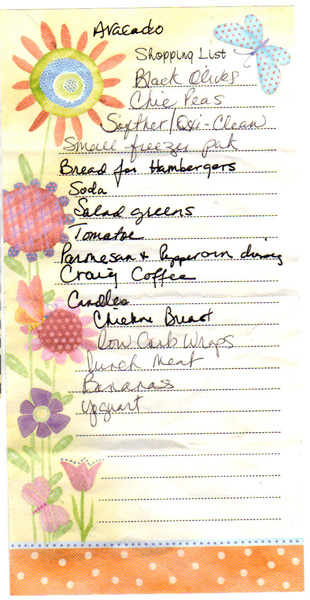 Avacado
Shopping List
Black Olives
Chic Peas
Softner/Oxi-Clean
Small freezer pak
Bread for Hambergers
Soda
Salad greens
Tomatoe
Parmesan & Peppercorn
Craig Coffee
Candles
Chicken Breast
low Carb Wraps
lunch meat
Bananas
Yoguart